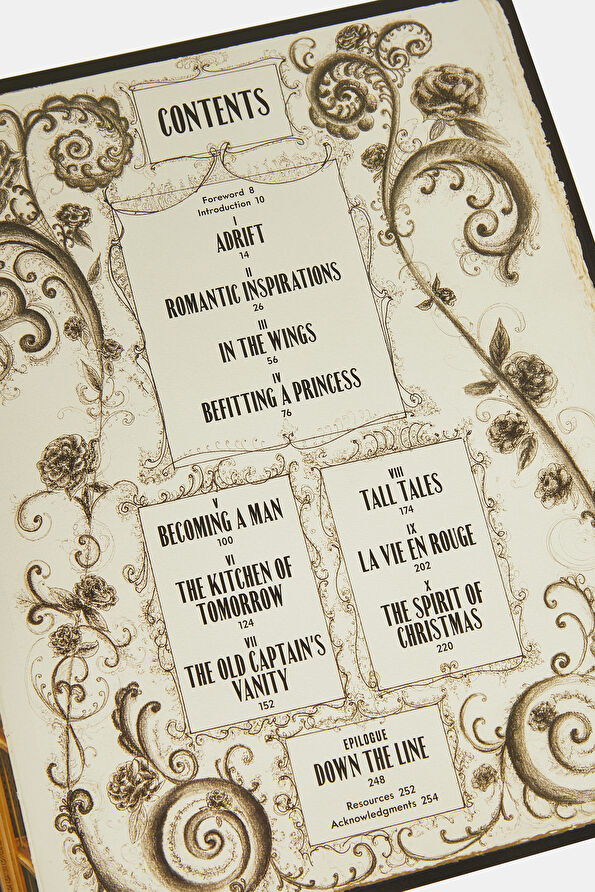 CONTENTS
Foreword 8
Introduction 10
I
ADRIFT
14
II
ROMANTIC INSPIRATIONS
26
III
IN THE WINGS
56
IV
BEFITTING A PRINCESS
76
V
BECOMING A MAN
100
VI
THE KITCHEN OF
TOMORROW
124
VII
THE OLD CAPTAIN'S
VANITY
152
VIII
TALL TALES
174
IX
LA VIE EN ROUGE
202
X
THE SPIRIT OF
CHRISTMAS
220
EPILOGUE
DOWN THE LINE
248
Resources 252
Acknowledgments 254